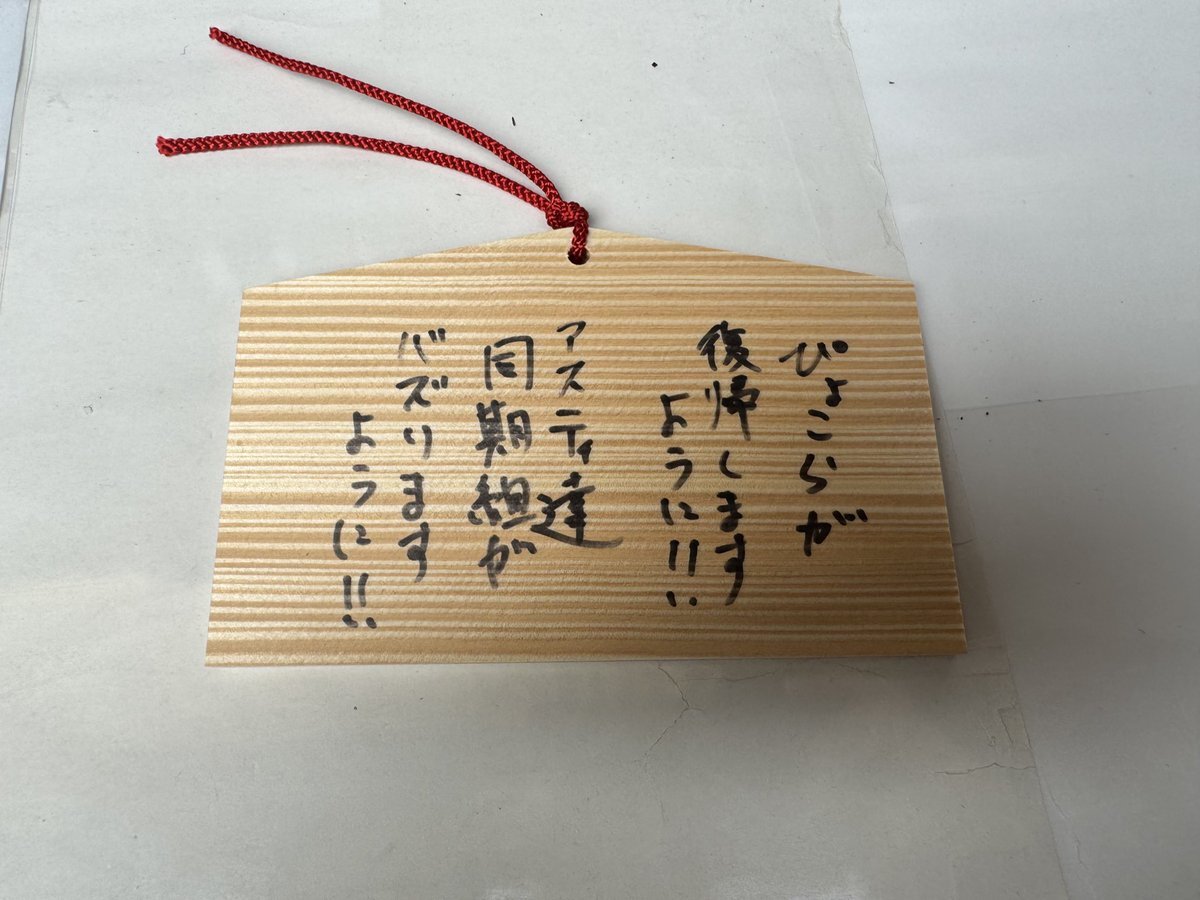 ぴょこらが
復帰します
ように!!
アスティ達
同期組が
バズります
ように!!